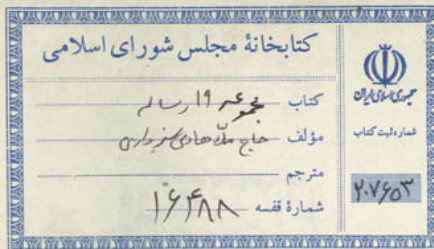 کتابخانهٔ مجلس شورای اسلامی
کتاب مجموعه ۱۹ رساله
مؤلف حاج ملا هادی سبزواری
مترجم
شمارهٔ قفسه ۱۶۴۸۸
جمهوری اسلامی ایران
شماره ثبت کتاب
۲۰۷۶۵۳